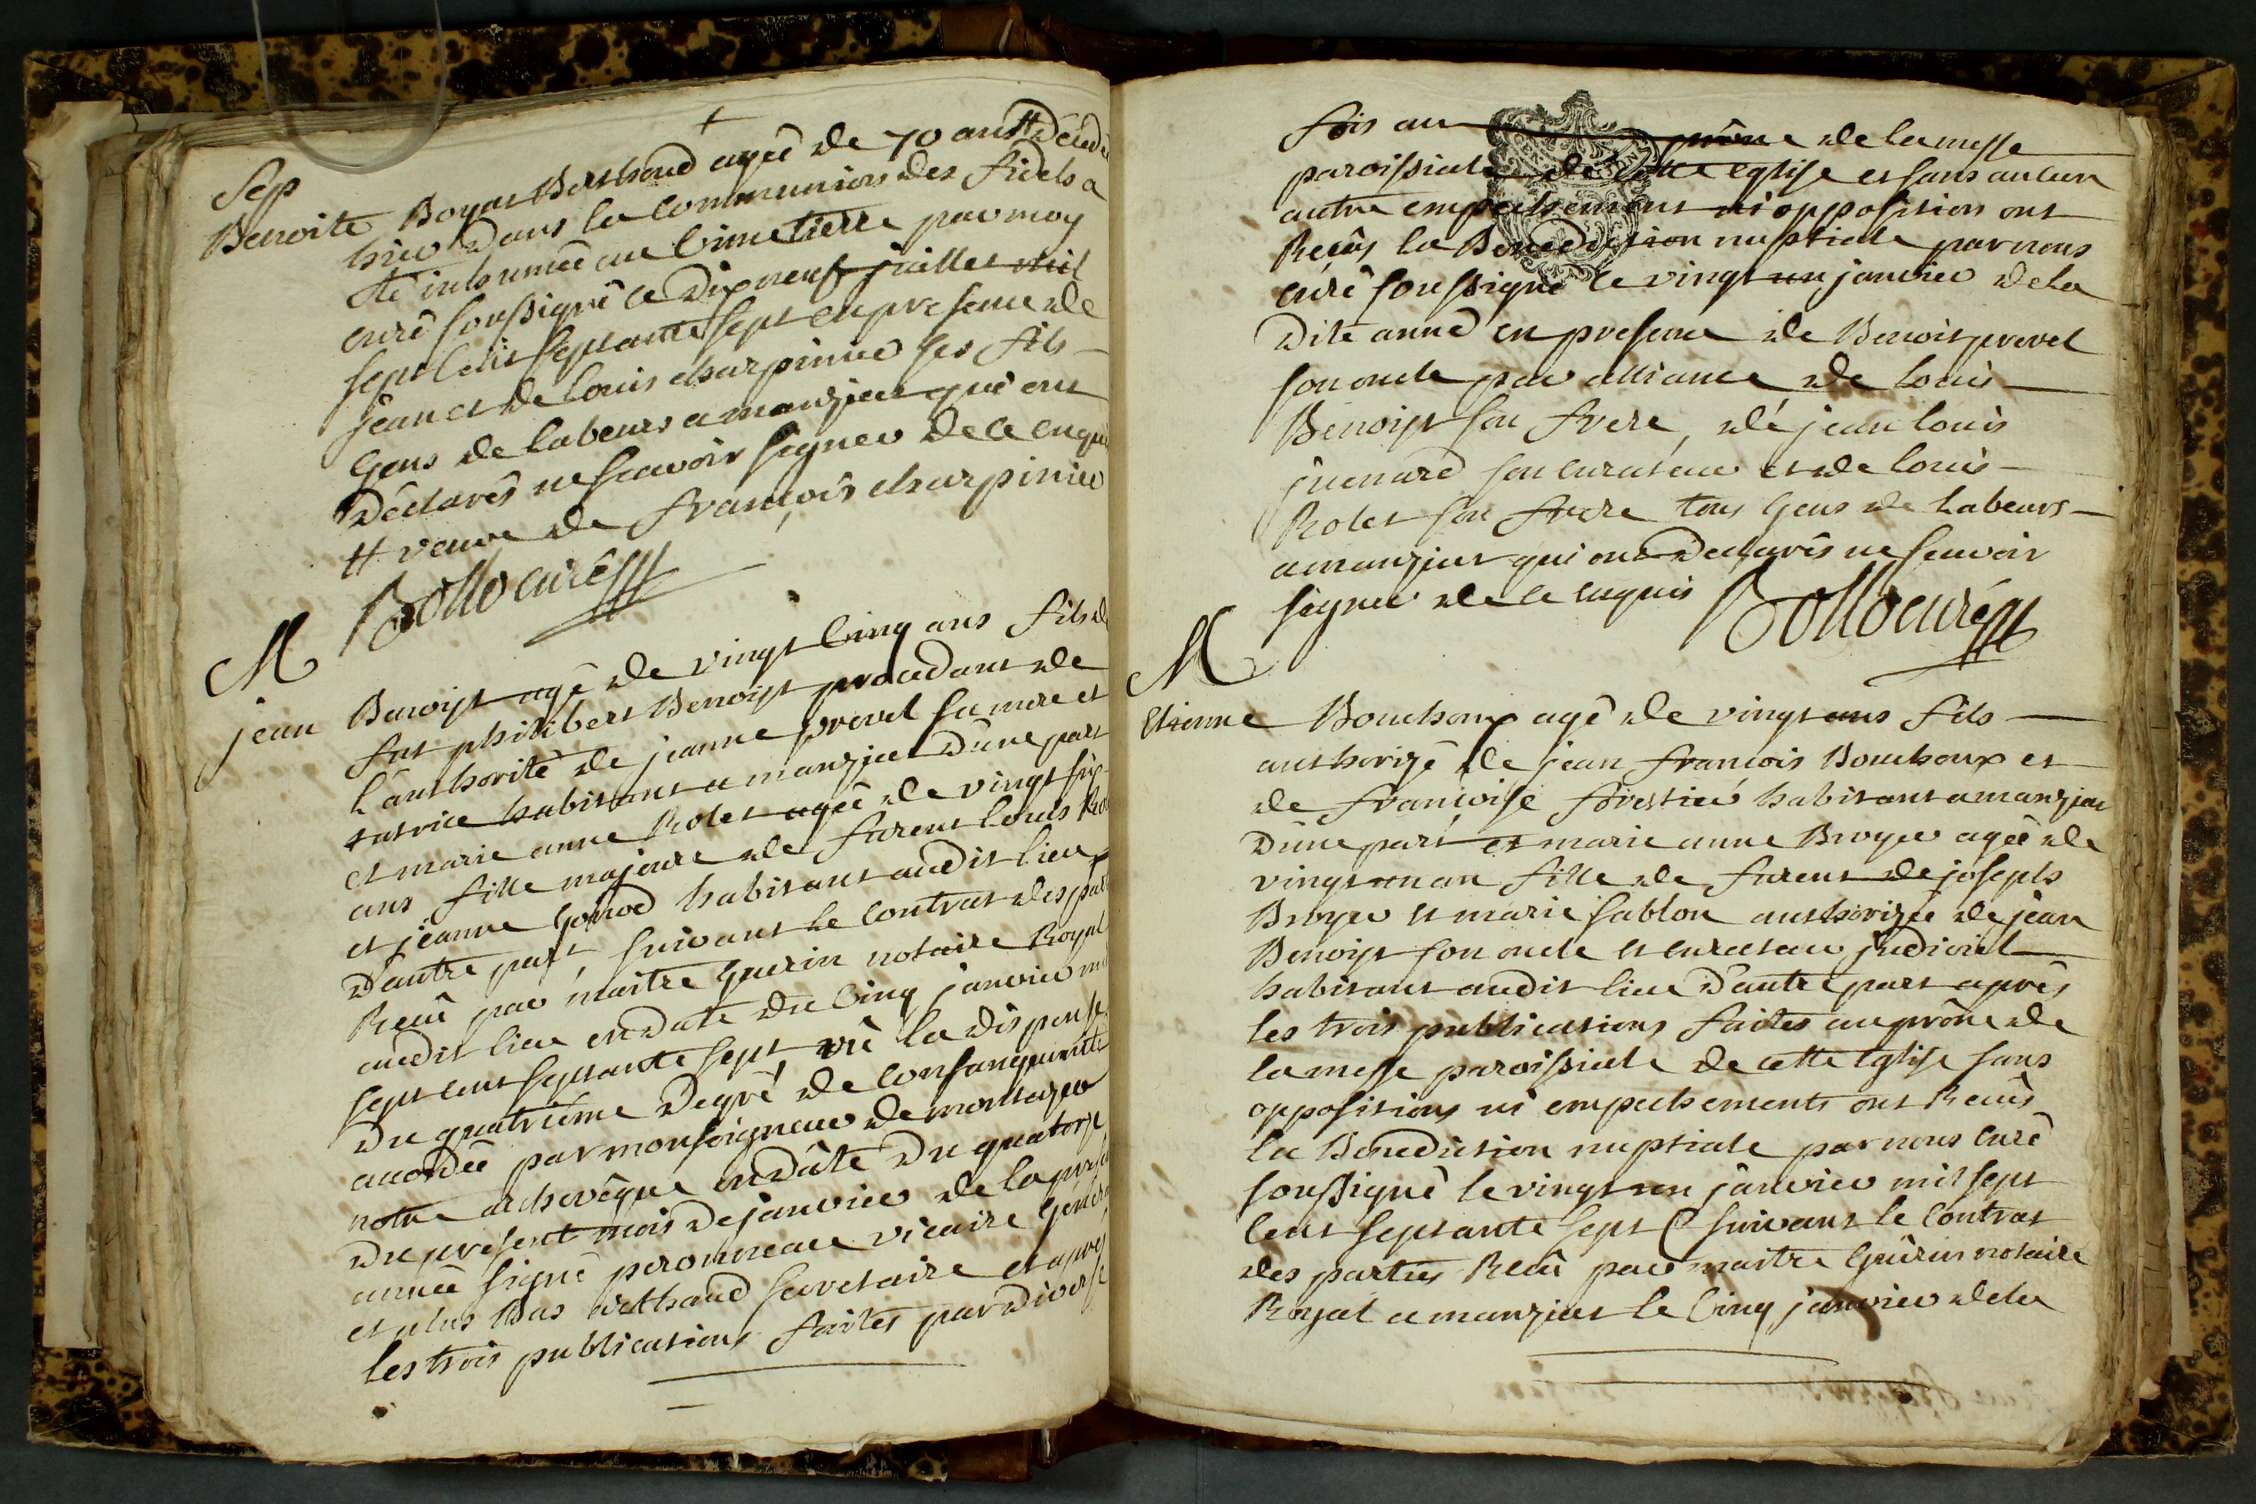 +
Sep
Benoite Boyat Berthoud agée de 70 ans # décédée
hier dans la communion des fidels a
été inhumée au cimetierre par moy
curé soussigné le dixneuf juillet mil
sept cent septante sept en presence de
jean et de louis charpinier ses fils
gens de labeurs a manziat qui ont
déclarés ne scavoir signer de ce enquis
# veuve de françois charpinier
Bollo curé
M
jean Benoist agé de vingt cinq ans fils de
fut philibert Benoist procedant de
l'authorité de jeanne prevel sa mere et
tutrice habitant a manziat d'une part
et marie anne Rolet agée de vingt six
ans fille majeure de furent louis Rolet
et jeanne Gonod habitant audit lieu
d'autre part, suivant le contrat des parties
Recû par maitre Guerin notaire Royal
audit lieu en date du cinq janvier mil
sept cent septante sept, vû la dispense
du quatrième degré de consanguinité
accordée par monseigneur de montazet
notre archevêque en dâte du quatorze
du present mois de janvier de la presente
année signé peronneau vicaire general
et plus bas secretaire et après
les trois publications faites par diverse
fois au prône de la messe
paroissiale de cette eglise et sans aucun
autre empechement ni opposition ont
Recûs la Benediction nuptiale par nous
curé soussigné le vingt un janvier de la
dite anné en presence de Benoit prevel
son oncle par alliance de louis
Benoist son frere, de jean louis
son curateur et de louis
Rolet son frere tous gens de labeurs
a manziat qui ont declarés ne scavoir
signer de ce enquis Bollo curé
M
Etienne Bouchoux agé de vingt ans fils
authorizé de jean francois Bouchoux et
de francoise forestier habitant a manziat
d'une part et marie anne Broyer agée de
vingt un an fille de furent de joseph
Broyer et marie sablon authorizée de jean
Benoist son oncle et curateur judiciel
habitant audit lieu d'autre part après
les trois publications faites au prône de
la messe paroissiale de cette Eglise sans
oppositions ni empechements ont Recûs
la Benediction nuptiale par nous curé
soussigné le vingt un janvier mil sept
cent septante sept & suivant le contrat
des parties Recû par maitre Guêrin notaire
Royal a manziat le cinq janvier de la